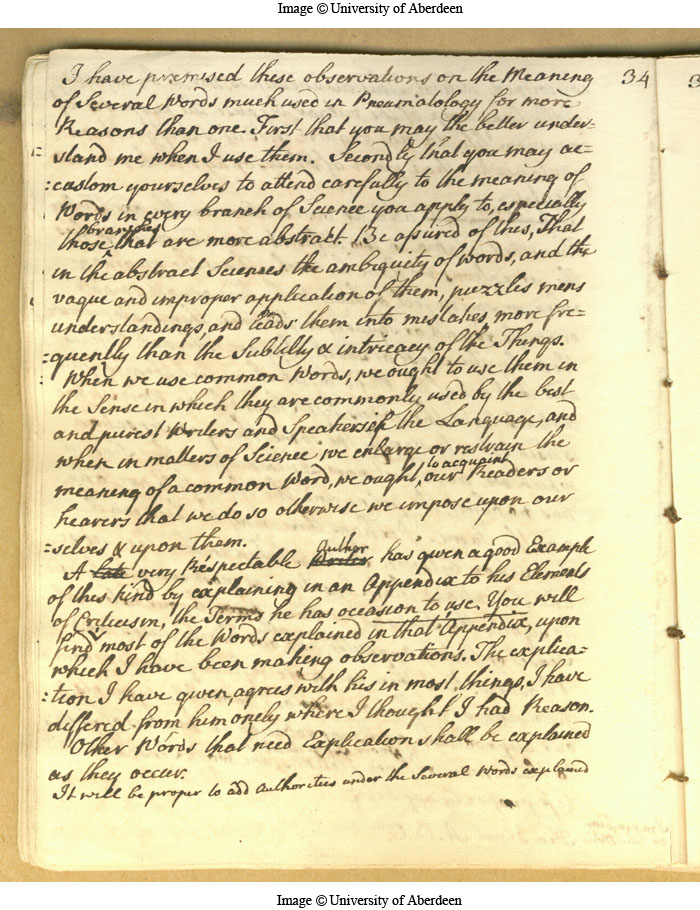 Image © University of Aberdeen
34
I have premised these observations on the Meaning
of Several Words much used in Pneumatology for more
Reasons than one. First that you may the better under-
stand me when I use them. Secondly that you may ac-
:custom yourselves to attend carefully to the meaning of
Words in every branch of Science you apply to, especially
branches
those that are more abstract. Be assured of this, That
in the abstract Sciences the ambiguity of words, and the
vague and improper application of them, puzzles mens
understandings, and leads them into mistakes more fre=
:quently than the Subtilty & intricacy of the Things.
When we use common Words, we ought to use them in
the Sense in which they are commonly used by the best
and purest Writers and Speakers in the Language, and
when in matters of Science we enlarge or restrain the
to acquaint
meaning of a common Word, we ought, our Readers or
hearers that we do so otherwise we impose upon our
:selves & upon them.
Author
A late very Respectable Writer has given a good Example
of this kind by explaining in an Appendix to his Elements
of Criticism, the Terms he has occasion to use. You will
find most of the Words explained in that Appendix, upon
which I have been making observations. The explica-
:tion I have given, agrees with his in most things, I have
differed from him onely where I thought I had Reason.
Other Words that need Explication shall be explained
as they occur.
It will be proper to add authorities under the Several Words explained
Image © University of Aberdeen